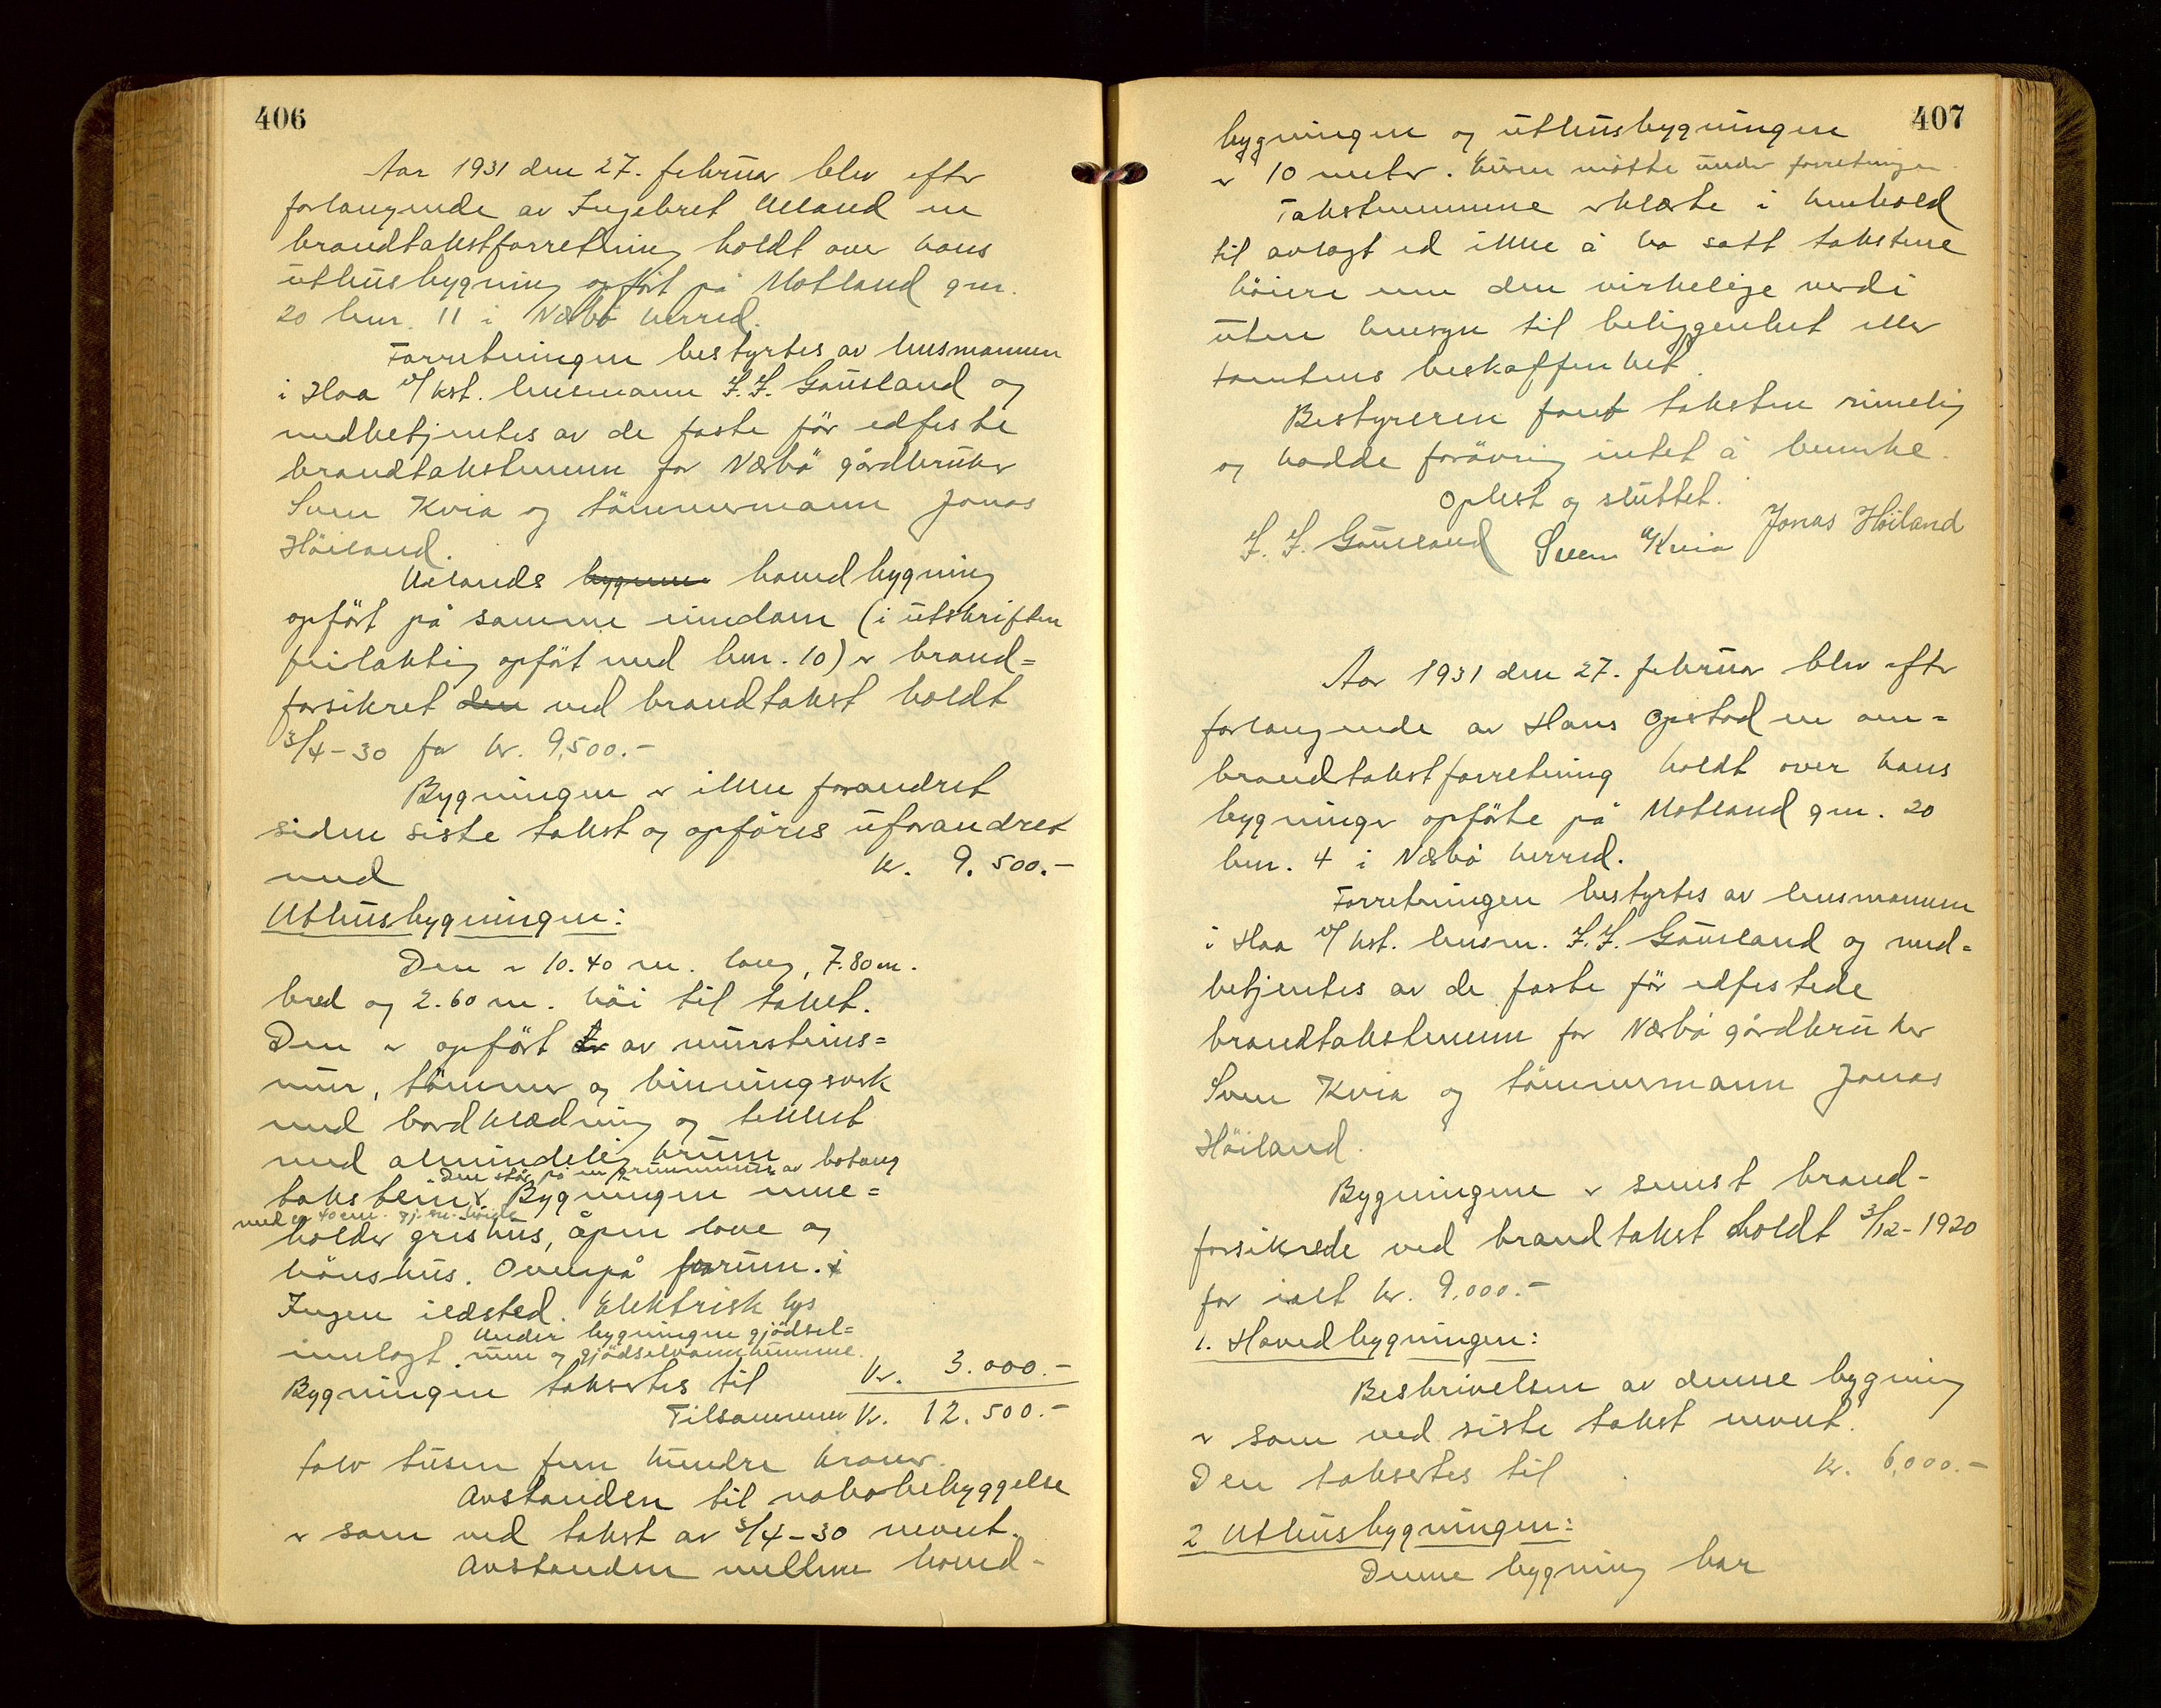 406
Aar 1931 den 27. februar blev efter
forlangende av Ingebret Ueland en
brandtakstforretning holdt over hans
uthusbygning opfört på Motland gnr.
20 bnr. 11 i Nærbö herred.
Forretningen bestyrtes av lensmannen
i Haa v/ kst. lensmann J. J. Gausland og
medbetjentes av de faste för edfeste
brandtakstmenn for Nærbö gårdbruker
Sven Kvia og tömmermann Jonas
Höiland.
Uelands bygnin hovedbygning
opfört på samme eiendom (i utskriften
feilaktig opfört med bnr. 10) er brand=
forsikret den ved brandtakst holdt
3/4-30 for kr. 9,500.-
Bygningen er ikke forandret
siden siste takst og opföres uforandret
med kr. 9.500.-
Uthusbygningen:
Den er 10.40 m. lang, 7.80 m.
bred og 2.60 m. höi til taket.
Den er opfört av murstens=
mur, tömmer og binningsverk
med bordklædning og tekket
med almindelig krum
Den står på en grunnmur av betong
takstein. Bygningen inne=
med en 40 cm. gj.sn. höide
holder grishus, åpen love og
hönshus. Ovenpå forrum.
Ingen ildsted. Elektrisk lys
Under bygningen gjödsel=
innlagt. rum og gjödselvannkumme.
Bygningen takseres til kr. 3.000.-
Tilsammen kr. 12.500.-
tolv tusen fem hundre kroner.
Avstanden til nabobebyggelse
er som ved takst av 3/4-30 nevnt.
Avstanden mellem hoved-
407
bygningen og uthusbygningen
er 10 meter. Eieren mötte under forretningen.
Takstmennene erklærte i henhold
til avlagt ed ikke å ha satt takstene
höiere enn den virkelige verdi
uten hensyn til beliggenhet eller
tomtens beskaffenhet.
Bestyreren fant taksten rimelig
og hadde forövrig intet å bemerke.
Oplest og sluttet.
J. J. Gausland Sven Kvia Jonas Höiland
Aar 1931 den 27. februar blev efter
forlangende av Hans Opstad en om=
brandtakstforretning holdt over hans
bygninger opförte på Motland gnr. 20
bnr. 4 i Nærbö herred.
Forretningen bestyrtes av lensmannen
i Haa v/ kst. lensm. J. J. Gausland og med=
betjentes av de faste för edfestede
brandtakstmenn for Nærbö gårdbruker
Sven Kvia og tömmermann Jonas
Höiland.
Bygningene er senest brand-
forsikrede ved brandtakst holdt 3/12-1920
for ialt kr. 9,000.-
1. Hovedbygningen:
Beskrivelsen av denne bygning
er som ved siste takst nevnt.
Den takseres til kr. 6,000.-
2 Uthusbygningen:
Denne bygning har